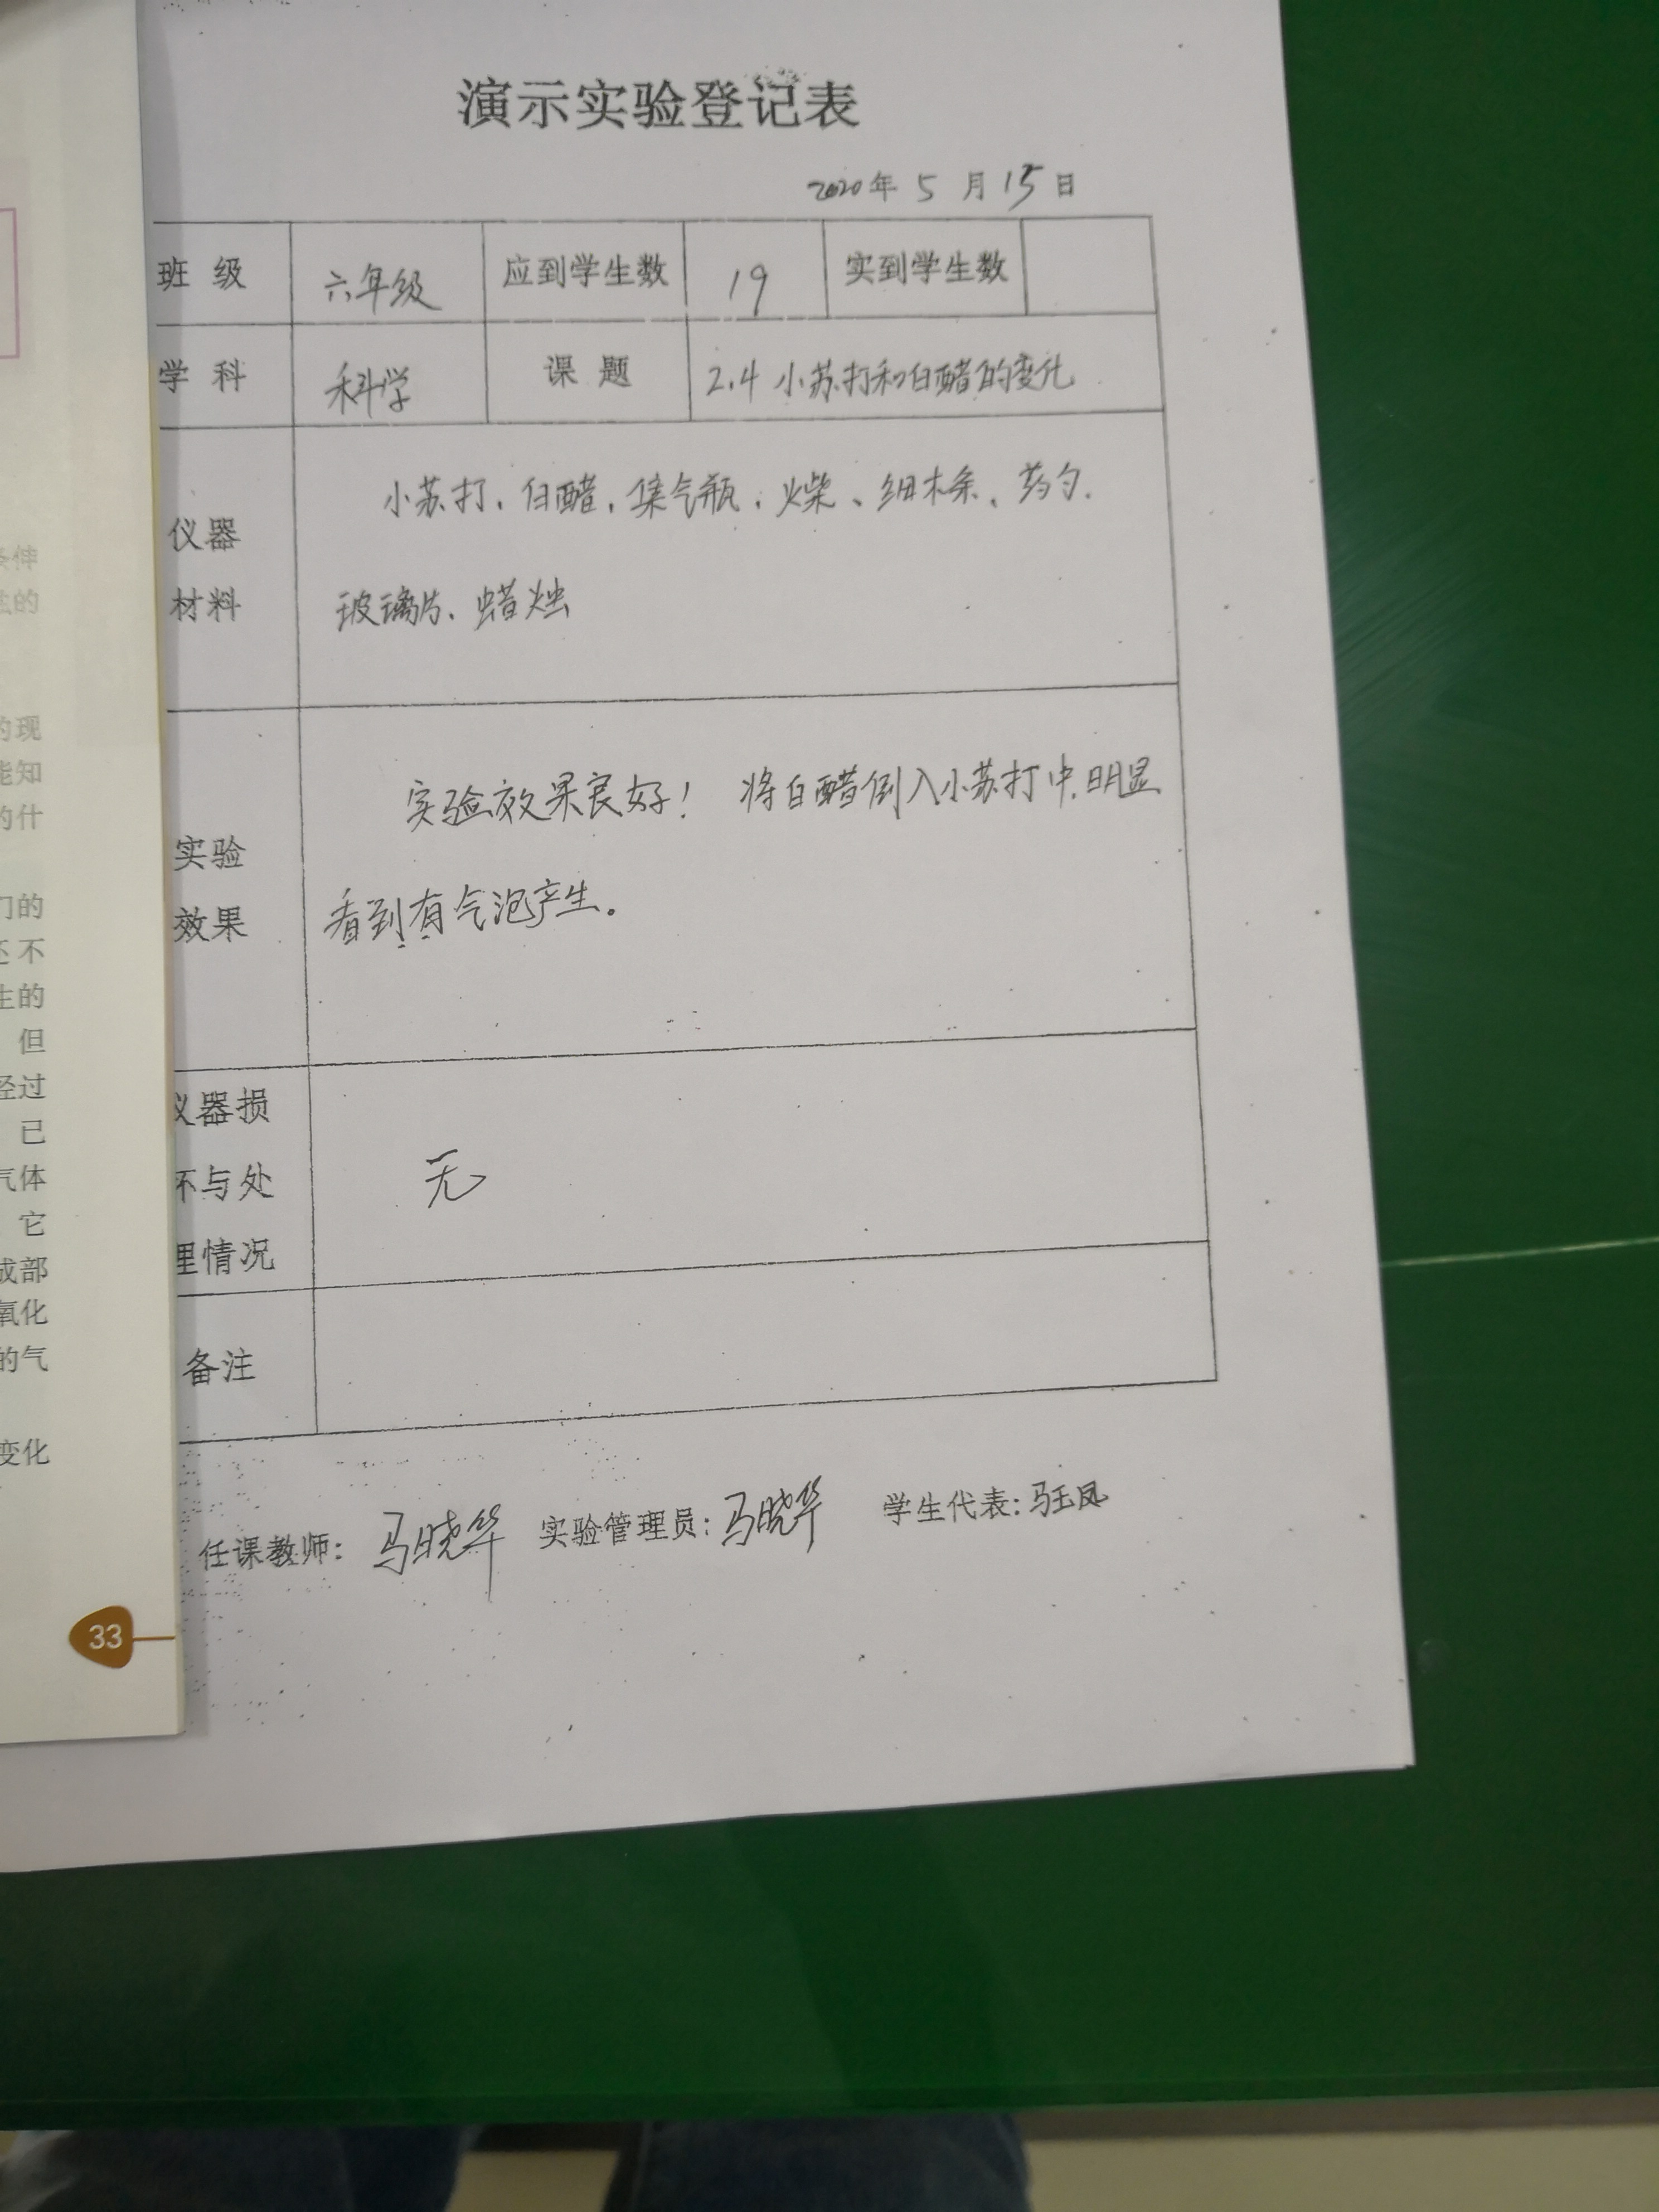 演示实验登记表
2020年 5 月 15 日
班 级 六年级 应到学生数 19 实到学生数
学 科 科学 课 题 2.4 小苏打和白醋的变化
仪器
材料
小苏打、白醋、集气瓶、火柴、细木条、药匀、
玻璃片、蜡烛
实验
效果
实验效果良好! 将白醋倒入小苏打中,明显
看到有气泡产生。
仪器损
坏与处
理情况
无
备注
任课教师: 马晓华 实验管理员: 马晓华 学生代表: 马玉凤
伸
的
的现
能知
的什
们的
还不
生的
但
经过
已
气体
它
成部
氧化
的气
变化
33